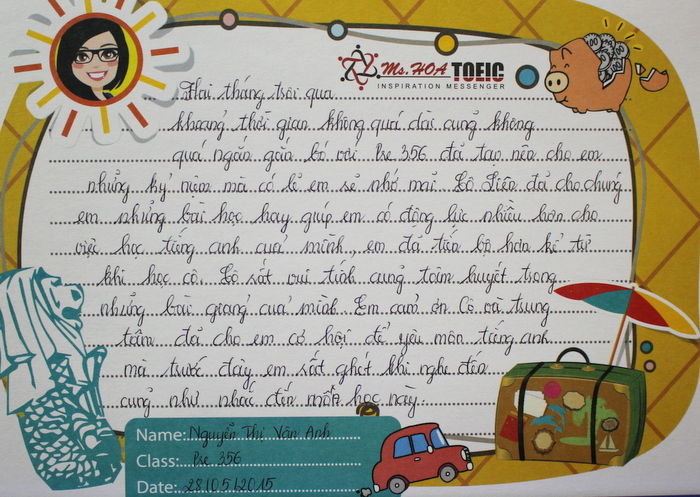 Ms. HOA TOEIC
INSPIRATION MESSENGER
Hai tháng trôi qua
khoảng thời gian không quá dài cũng không
quá ngắn gắn bó với Pre 356 đã tạo nên cho em
những kỷ niệm mà có lẽ em sẽ nhớ mãi. Cô Liên đã cho chúng
em những bài học hay giúp em có động lực nhiều hơn cho
việc học tiếng anh của mình, em đã tiến bộ hơn kể từ
khi học cô. Cô rất vui tính cũng tâm huyết trong
những bài giảng của mình. Em cảm ơn Cô và trung
tâm đã cho em cơ hội để yêu môn tiếng anh
mà trước đây em rất ghét khi nghe đến
cũng như nhắc đến môn học này.
Name: Nguyễn Thị Vân Anh
Class: Pre 356
Date: 28/05/2015